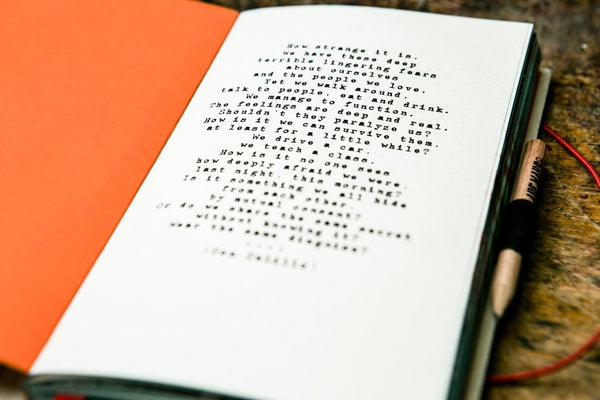 How strange it is.
We have these deep
terrible lingering fears
about ourselves
and the people we love.
Yet we walk around,
talk to people, eat and drink.
We manage to function.
The feelings are deep and real.
Shouldn't they paralyze us?
How is it we can survive them,
at least for a little while?
We drive a car,
we teach a class.
How is it no one sees
how deeply afraid we were,
last night, this morning?
Is it something we all hide
from each other,
by mutual consent?
Or do we share the same secret
without knowing it?
Wear the same disguise?